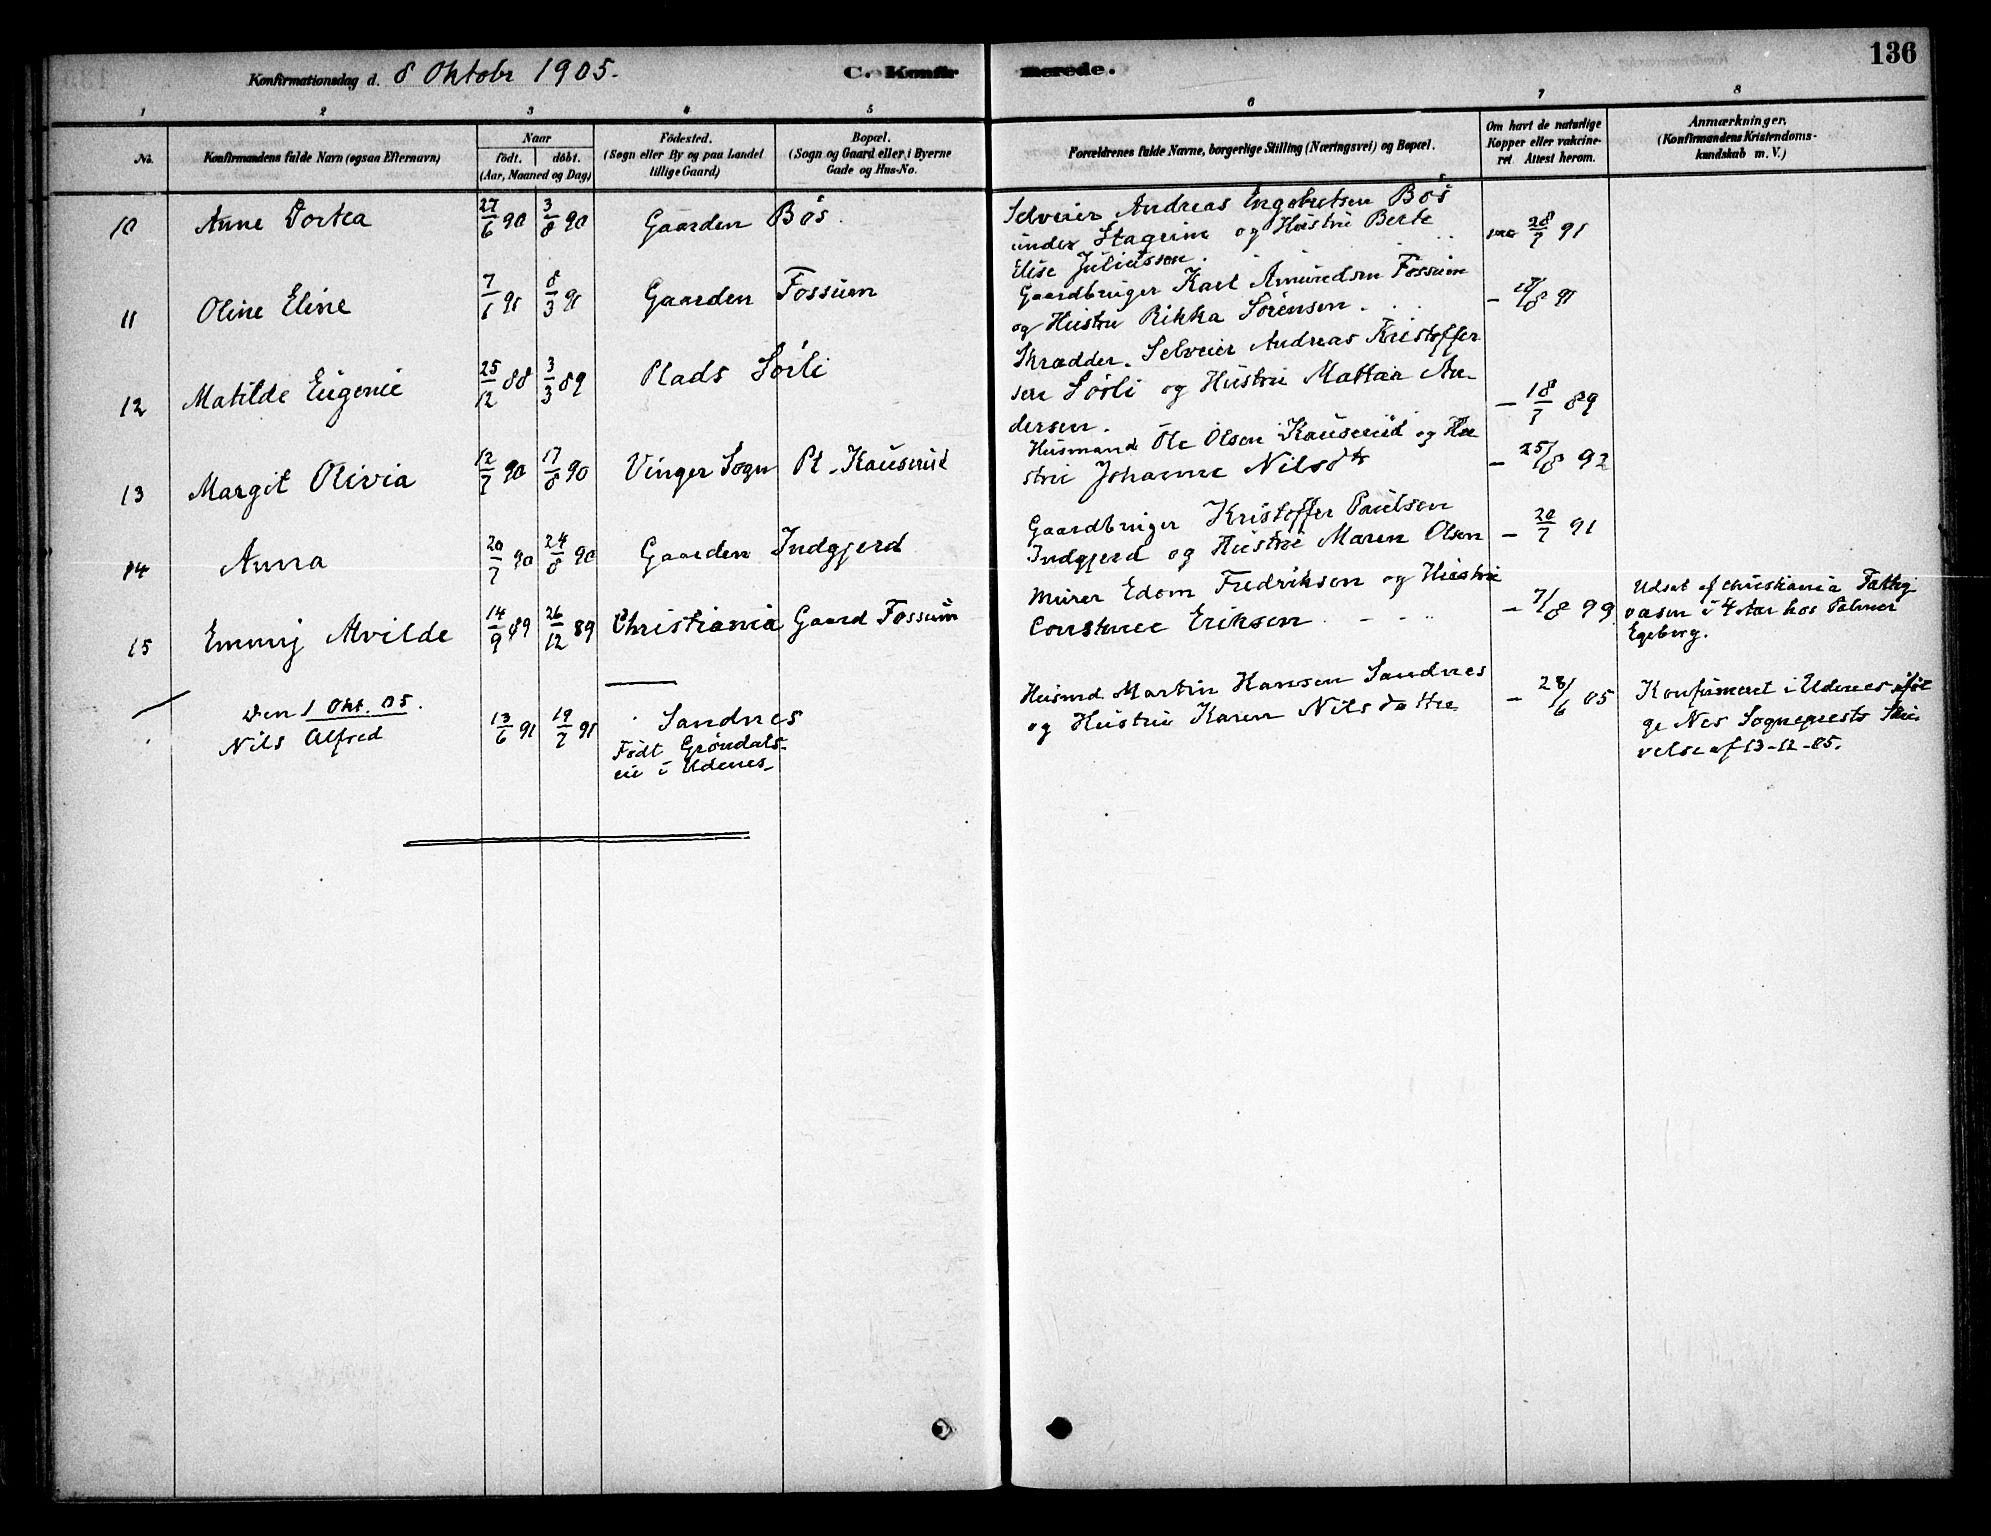 Konfirmationsdag d. 8 Oktobr 1905.
C. Konfir
merede.
136
1 2 3 4 5 6 7 8
No.
Konfirmandens fulde Navn (ogsaa Efternavn)
Naar
födt. döbt.
(Aar, Maaned og Dag)
Födested.
(Sogn eller By og paa Landet
tillige Gaard)
Bopæl.
(Sogn og Gaard eller i Byerne
Gade og Hus-No.
Forældrenes fulde Navne, borgerlige Stilling (Næringsvei) og Bopæl.
Om havt de naturlige
Kopper eller vakcine-
ret. Attest herom.
Anmærkninger.
(Konfirmandens Kristendoms-
kundskab m. V.)
10 Anne Dortea 27/6 90 3/8 90 Gaarden Bös.
Selveier Andreas Engebretsen Bös
under og Hustru Berte
Elise Juliussen.
vac 28/7 91
11 Oline Eline 7/1 91 8/3 91 Gaarden Fossum
Gaardbruger Karl Amundsen Fossum
og Hustru Rikka Sörensen.
12 Matilde Eugenie 25/12 88 3/3 89 Plads Sörli
Skrædder. Selveier Andreas Kristoffer
sen Sörli og Hustru Mattea An-
dersen.
– 18/7 89
13 Margit Olivia 12/7 90 17/8 90 Vinger Sogn Pl. Kauserud
Husmand Ole Olsen Kauserud og Hu
stru Johanne Nilsdtr
– 25/8 92
14 Anna 20/7 90 24/8 90 Gaarden Indgjerd
Gaardbruger Kristoffer Paulsen
Indgjerd og Hustru Maren Olsen
– 20/7 91
15 Emmy Alvilde 14/9 89 26/12 89 Christiania Gaard Fossum
Murer Edom Fredriksen og Hustru
Constance Eriksen
– 7/8 99
Udsat af Christiania Fattig
væsen i 4 Aar hos Palmer
Egeberg.
Den 1 Okt. 05.
Nils Alfred 13/6 91 19/7 91 Sandnes
Födt Gröndals-
eie i Udenes
Husmd Martin Hansen Sandnes
og Hustru Karen Nilsdatter
– 28/6 05
Konfirmeret i Udenes iföl
ge Nes Sogneprests Skri
velse af 13-12-05.